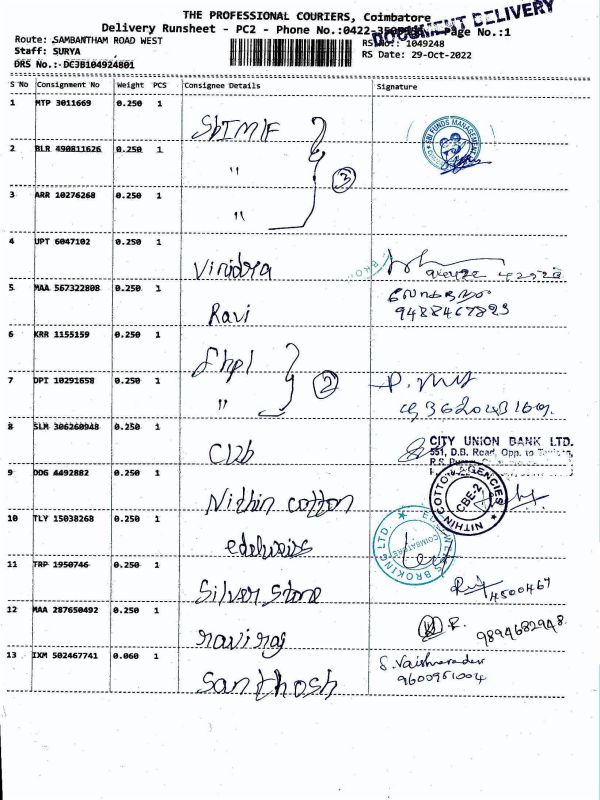 THE PROFESSIONAL COURIERS, Coimbatore
DOCUMENT DELIVERY
Delivery Runsheet - PC2 - Phone No.:0422- Page No.:1
Route: SAMBANTHAM ROAD WEST
RS No.: 1049248
Staff: SURYA
RS Date: 29-Oct-2022
DRS No.: DC3B104924801
S No Consignment No Weight PCS Consignee Details Signature
1 MTP 3011669 0.250 1 SBIMF
SBI FUNDS MANAGEMENT
2 BLR 490811626 0.250 1 "
3
3 ARR 10276268 0.250 1 "
4 UPT 6047102 0.250 1 Viridra
5 MAA 567322808 0.250 1 Ravi
9488467823
6 KRR 1155159 0.250 1 Shpl
7 DPI 10291658 0.250 1 "
2
8 SLM 306260948 0.250 1 CUB
CITY UNION BANK LTD.
551, D.B. Road, Opp. to
9 DDG 4492882 0.250 1 Nithin cotton
NITHIN COTTON AGENCIES
CBE-2
10 TLY 15038268 0.250 1 edelweiss
EDELWEISS BROKING LTD.
COIMBATORE
11 TRP 1950746 0.250 1 Silver stone
4500467
12 MAA 287650492 0.250 1 raviraj
9894682948
13 IXM 502467741 0.060 1 Santhosh
9600951004